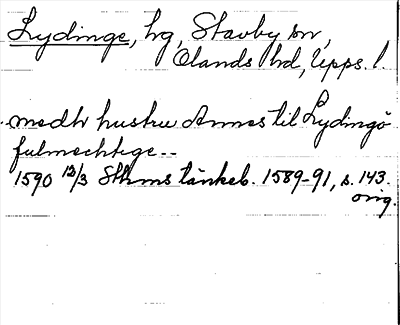 Lydinge, hg, Stavby sn,
Olands hd, Upps. l.
medh hustru Annes til Lydingö
fulmechtige--
1590 12/3 Sthms tänkeb. 1589-91, s. 143.
orig.